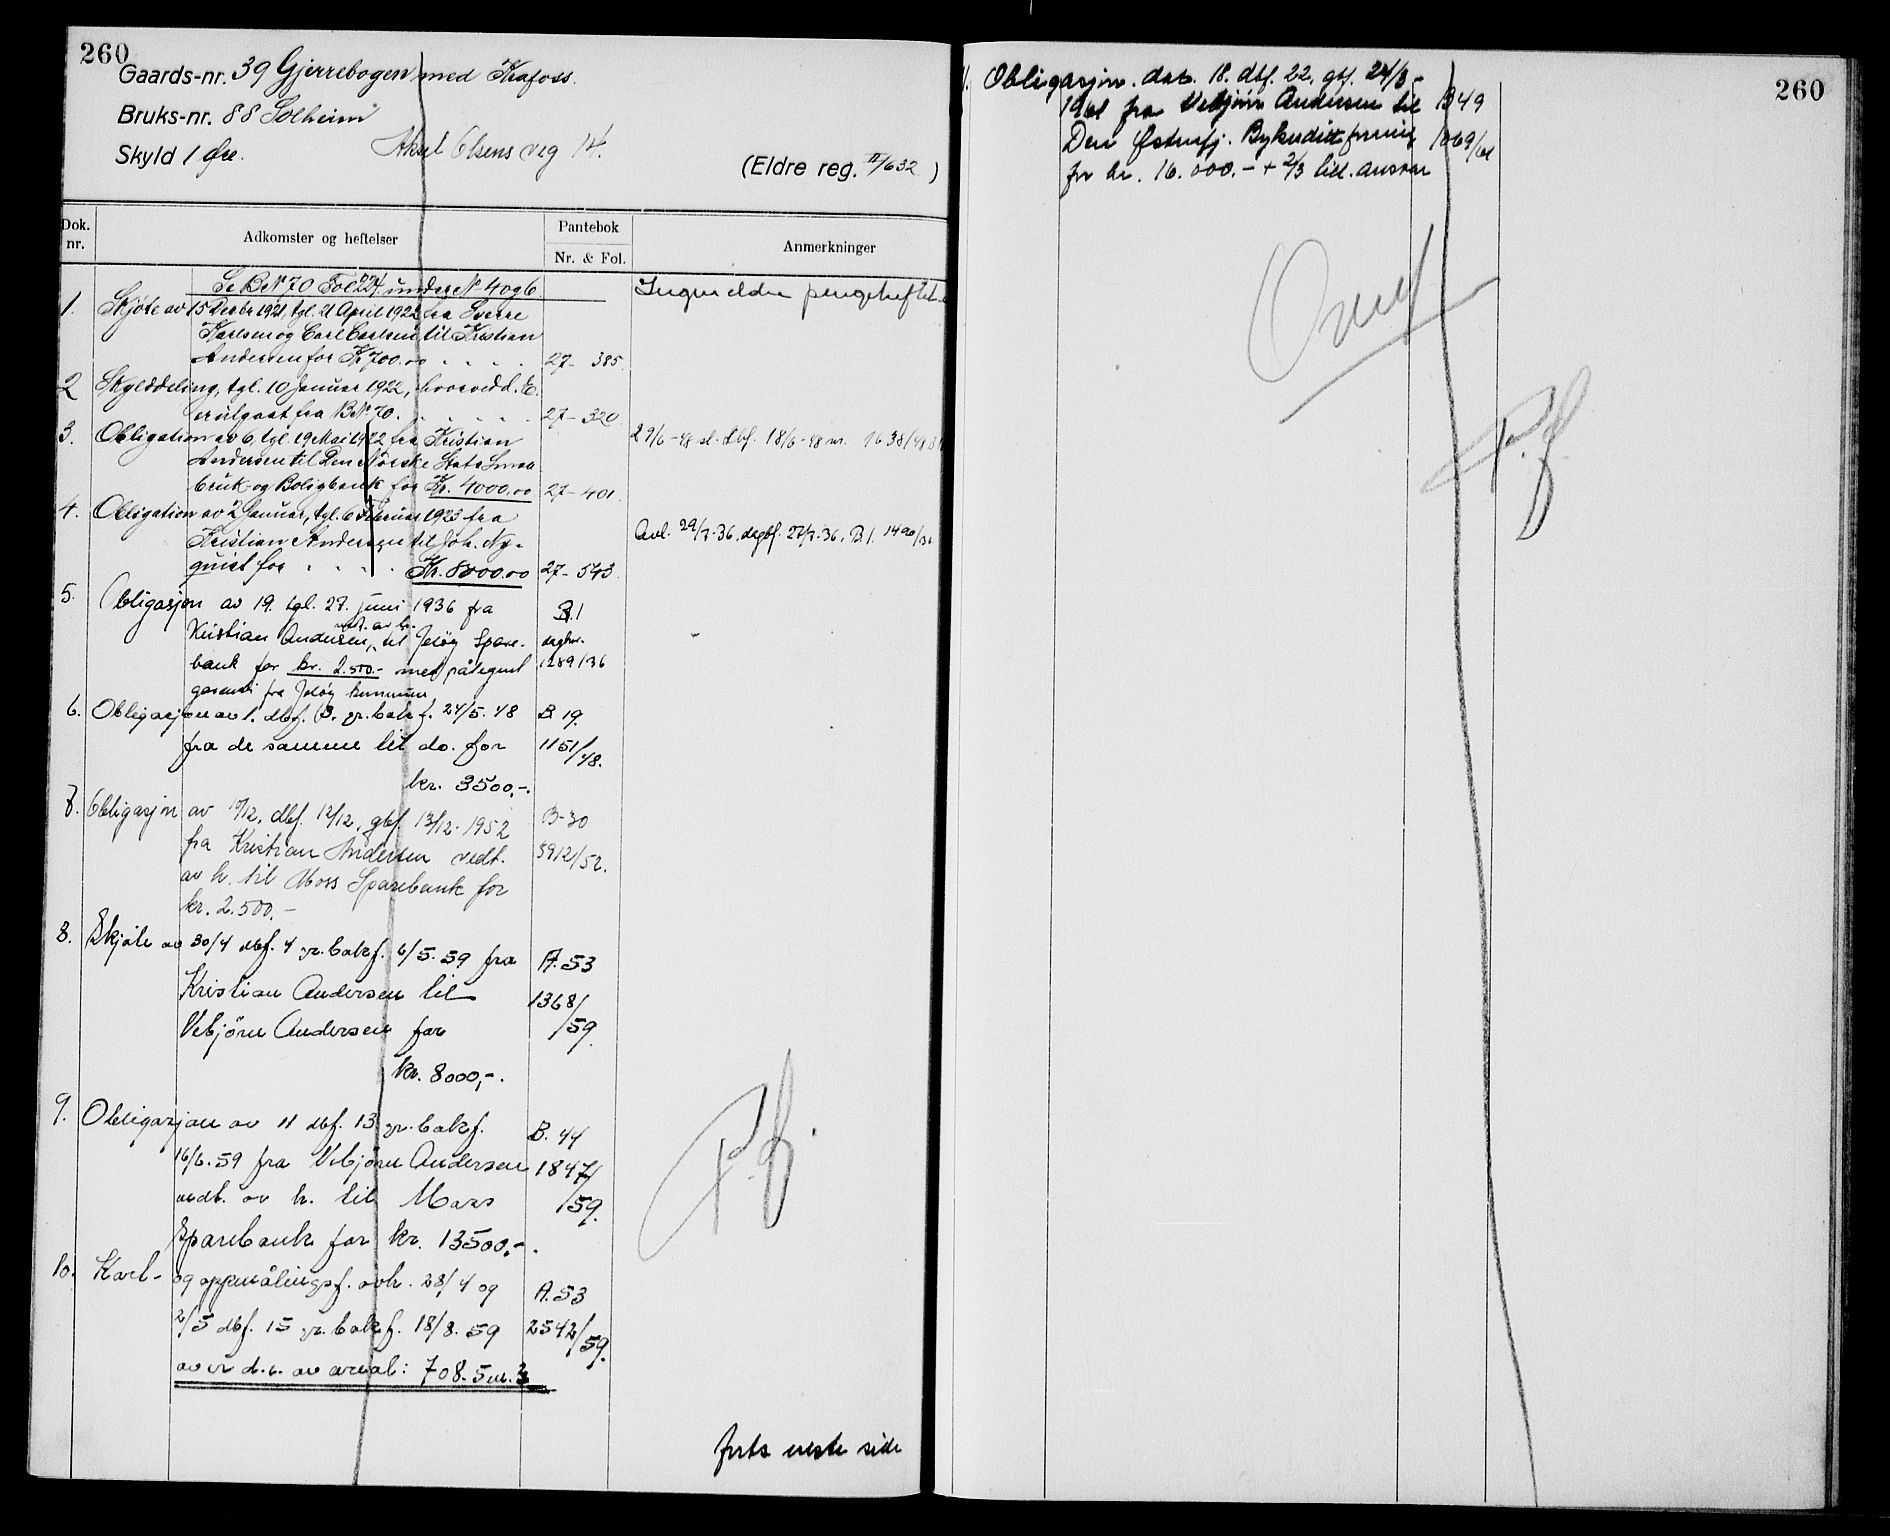 260
Gaards-nr. 39 Gjerrebogen med Krafoss.
Bruks-nr. 88 Solheim
Skyld 1 Øre. Aksel Olsens veg 14.
(Eldre reg. II/632)
Dok. nr.
Adkomster og heftelser
Pantebok
Nr. & Fol.
Anmerkninger
Se BNo 70 Fol 224 under No 4 og 6.
Ingen eldre pengeheftel
1. Skjøte av 15 Decbr 1921, tgl. 21 April 1922 fra Sverre
Karlsen og Carl Carlsen til Kristian
Andersen for Kr 700.00 . . . . 27- 385.
2 Skylddeling, tgl. 10 Januar 1922, hvorved d. E.
er utgaat fra BNo 70. . . . . 27- 320.
3. Obligation av 6, tgl. 19 Mai 1922 fra Kristian 29/6-48 sl. dbf. 18/6-48 nr. 1638/48
Andersen til Den Norske Stats Smaa
bruk og Boligbank for Kr. 4000.00 27-401.
4. Obligation av 2 Januar, tgl. 6 Februar 1923 fra
Kristian Andersen til Joh. Ny- Avl. 29/7-36, dagbf. 27/7-36, B.1. 1490/36
quist for . . . . Kr. 8000.00 27-543.
5. Obligasjon av 19. tgl. 27. juni 1936 fra B.1
Kristian Andersen, vedt. av h. til Jeløy Spare- dagbnr.
bank for kr. 2.500.- med påtegnet 1289/36
garanti fra Jeløy kommune
6. Obligasjon av 1. dbf. 13. gr.bokf. 24/5.48 B 19.
fra de samme til do. for 1151/48.
kr. 3500,-.
7. Obligasjon av 10/12, dbf. 12/12, gbf. 13/12-1952 B-30
fra Kristian Andersen vedt. 3912/52.
av h. til Moss Sparebank for
kr. 2.500.-
8. Skjøte av 30/4 dbf. 4 gr.bokf. 6/5.59 fra A.53
Kristian Andersen til 1368/59.
Vebjörn Andersen for
kr. 8000,-.
9. Obligasjon av 11 dbf. 13 gr.bokf. B. 44
16/6.59 fra Vebjörn Andersen 1847/59.
vedt. av h. til Moss
Sparebank for kr. 13500,-.
10. Kart- og oppmålingsf. avh. 28/4 og A.53
2/5 dbf. 15 gr.bokf. 18/8.59 2542/59.
over d.e. av areal: 708.5 m.2
P.f.
forts neste side
260
11. Obligasjon. dat. 18. dbf. 22, gbf. 24/3-
1961 fra Vebjörn Andersen til B49
Den Østenfj. Bykredittforening 1069/61
for kr. 16.000.- + 2/3 till. ansvar
P.f.